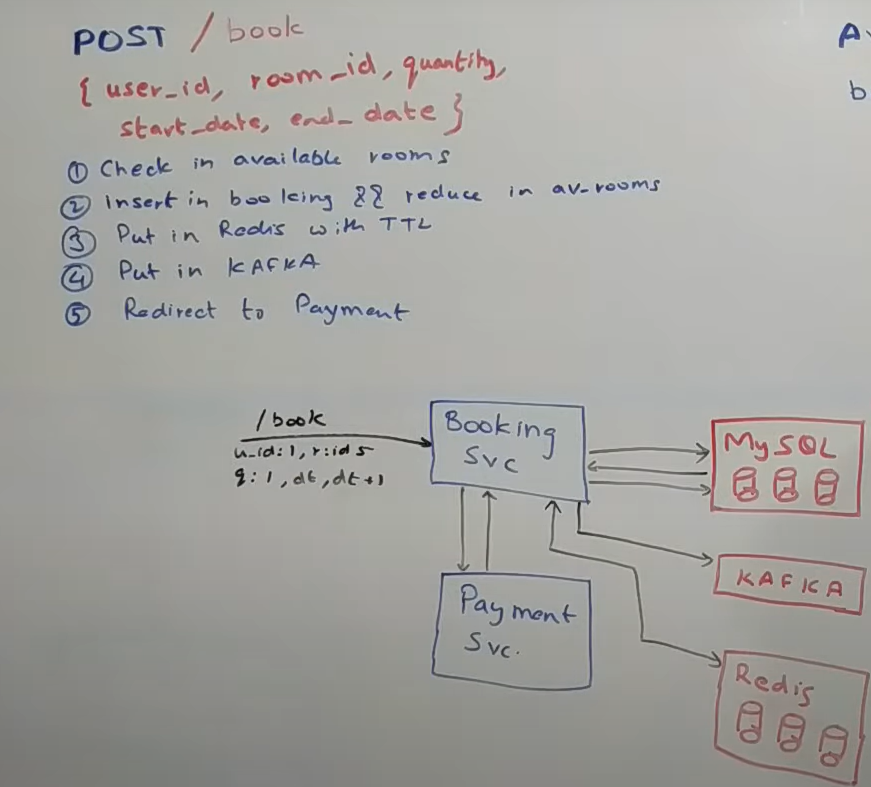 POST /book
{ user_id, room_id, quantity,
start_date, end_date }
① Check in available rooms
② Insert in booking && reduce in av-rooms
③ Put in Redis with TTL
④ Put in KAFKA
⑤ Redirect to Payment
A
b
/book
u_id: 1, r:id 5
q: 1, dt, dt+1
Booking
Svc
MySQL
KAFKA
Payment
Svc.
Redis